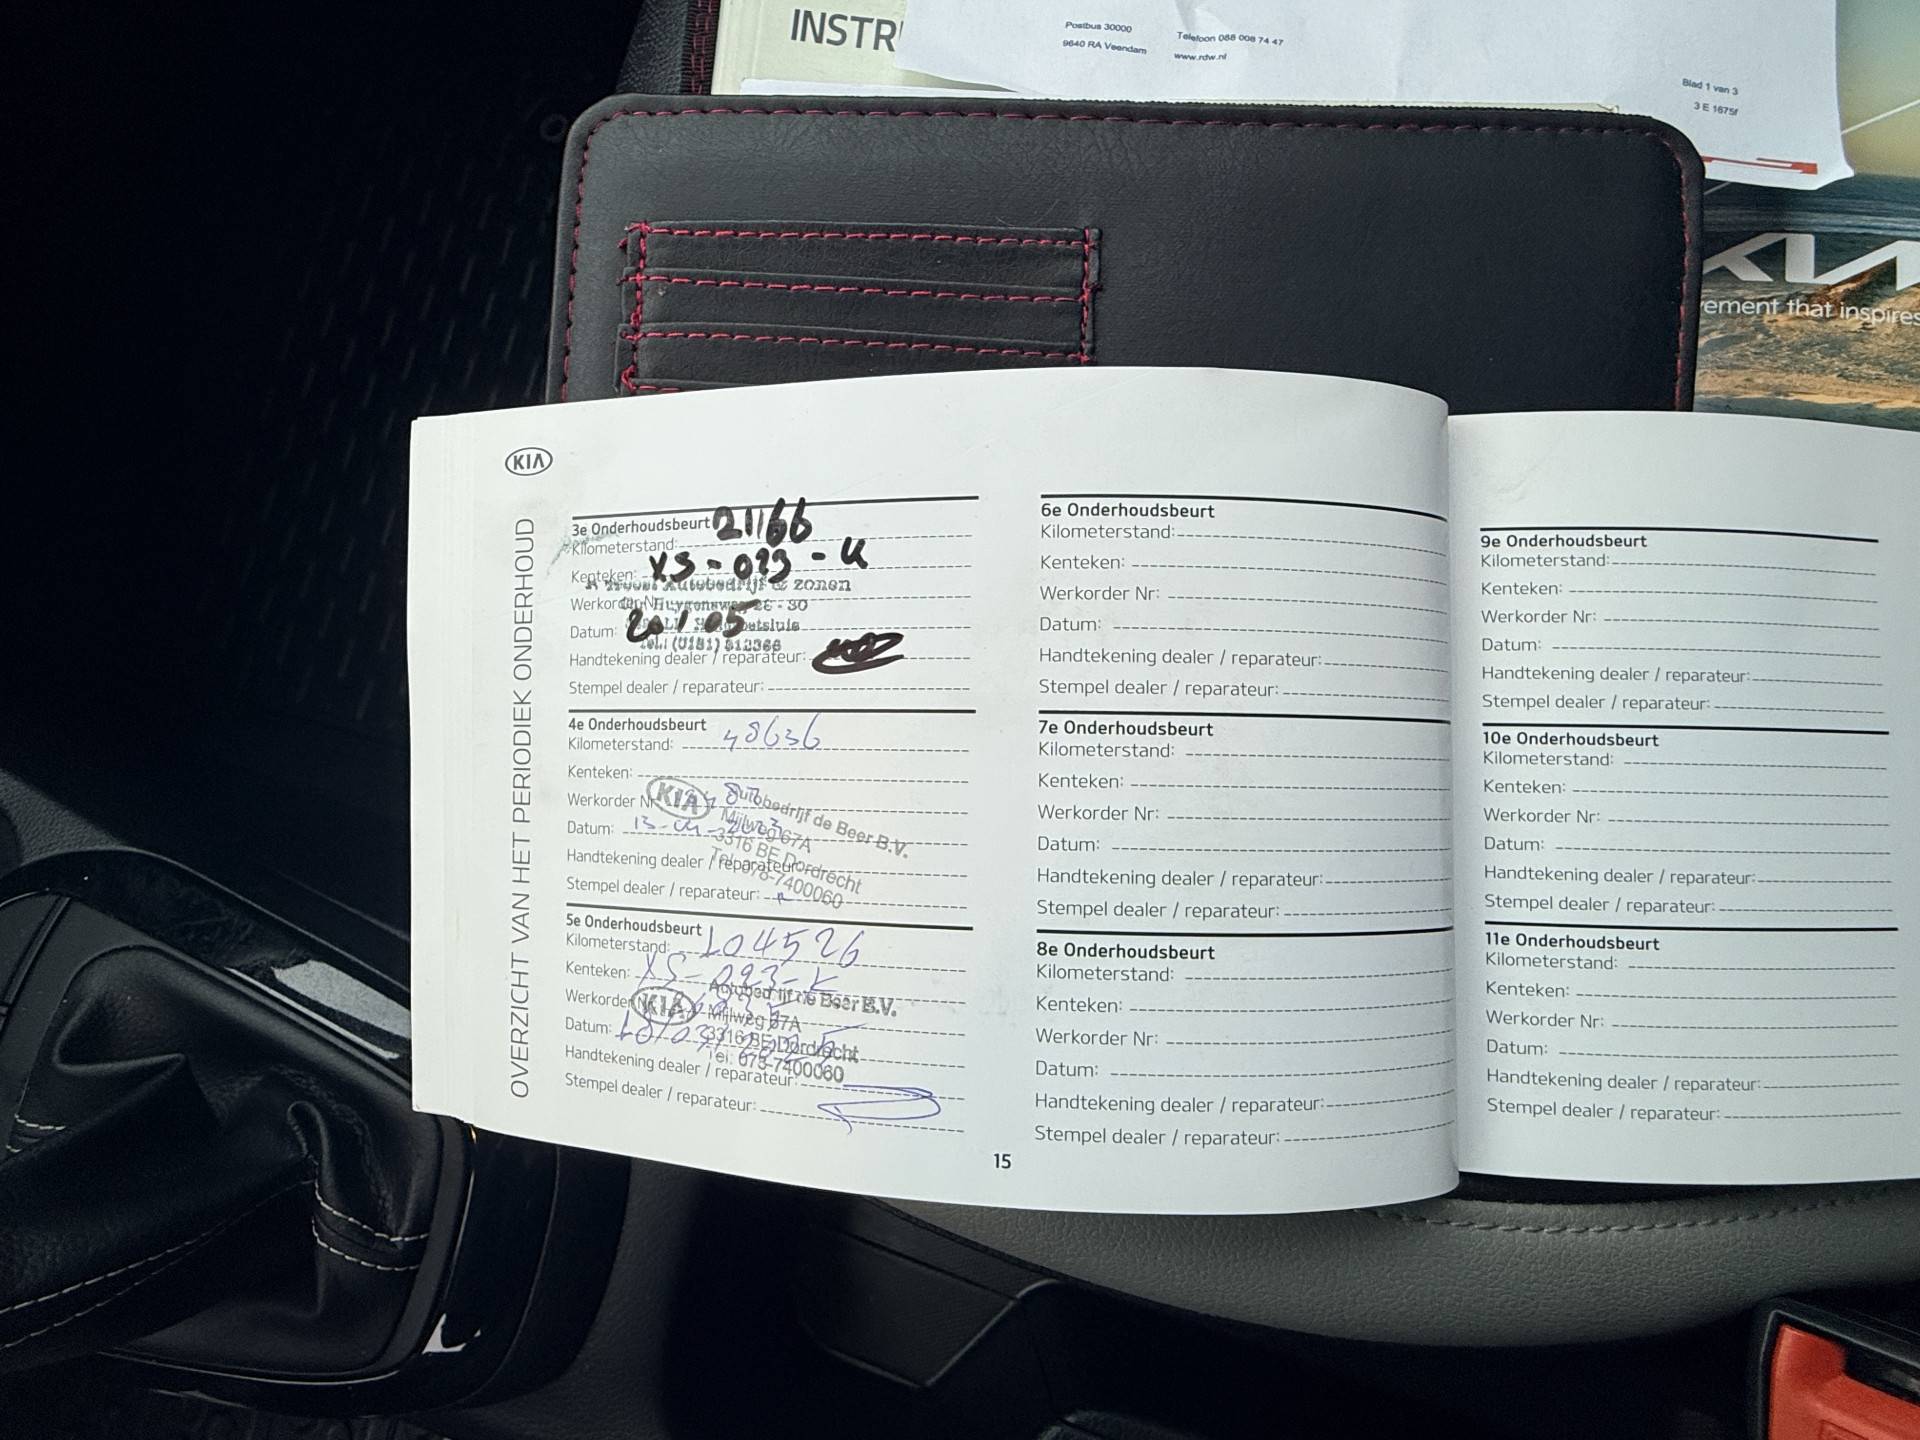 INSTR
Postbus 30000
9640 RA Veendam
Telefoon 088 008 74 47
www.rdw.nl
Blad 1 van 3
3 E 1675f
KIA
ement that inspires
KIA
OVERZICHT VAN HET PERIODIEK ONDERHOUD
3e Onderhoudsbeurt
Kilometerstand: 21166
Kenteken: XS-093-K
Autobedrijf & zonen
Werkorder Nr: Huygensweg 26 - 30
Datum: 20/105
Tel.: (0181) 312366
Handtekening dealer / reparateur:
Stempel dealer / reparateur:
4e Onderhoudsbeurt
Kilometerstand: 48636
Kenteken:
Werkorder Nr:
KIA Autobedrijf de Beer B.V.
Mijlweg 67A
Datum:
3316 BE Dordrecht
Handtekening dealer / reparateur:
Tel: 078-7400060
Stempel dealer / reparateur:
5e Onderhoudsbeurt
Kilometerstand: 104526
Kenteken: XS-093-K
Werkorder Nr:
KIA Autobedrijf de Beer B.V.
Mijlweg 67A
Datum:
3316 BE Dordrecht
Tel: 078-7400060
Handtekening dealer / reparateur:
Stempel dealer / reparateur:
15
6e Onderhoudsbeurt
Kilometerstand:
Kenteken:
Werkorder Nr:
Datum:
Handtekening dealer / reparateur:
Stempel dealer / reparateur:
7e Onderhoudsbeurt
Kilometerstand:
Kenteken:
Werkorder Nr:
Datum:
Handtekening dealer / reparateur:
Stempel dealer / reparateur:
8e Onderhoudsbeurt
Kilometerstand:
Kenteken:
Werkorder Nr:
Datum:
Handtekening dealer / reparateur:
Stempel dealer / reparateur:
9e Onderhoudsbeurt
Kilometerstand:
Kenteken:
Werkorder Nr:
Datum:
Handtekening dealer / reparateur:
Stempel dealer / reparateur:
10e Onderhoudsbeurt
Kilometerstand:
Kenteken:
Werkorder Nr:
Datum:
Handtekening dealer / reparateur:
Stempel dealer / reparateur:
11e Onderhoudsbeurt
Kilometerstand:
Kenteken:
Werkorder Nr:
Datum:
Handtekening dealer / reparateur:
Stempel dealer / reparateur: